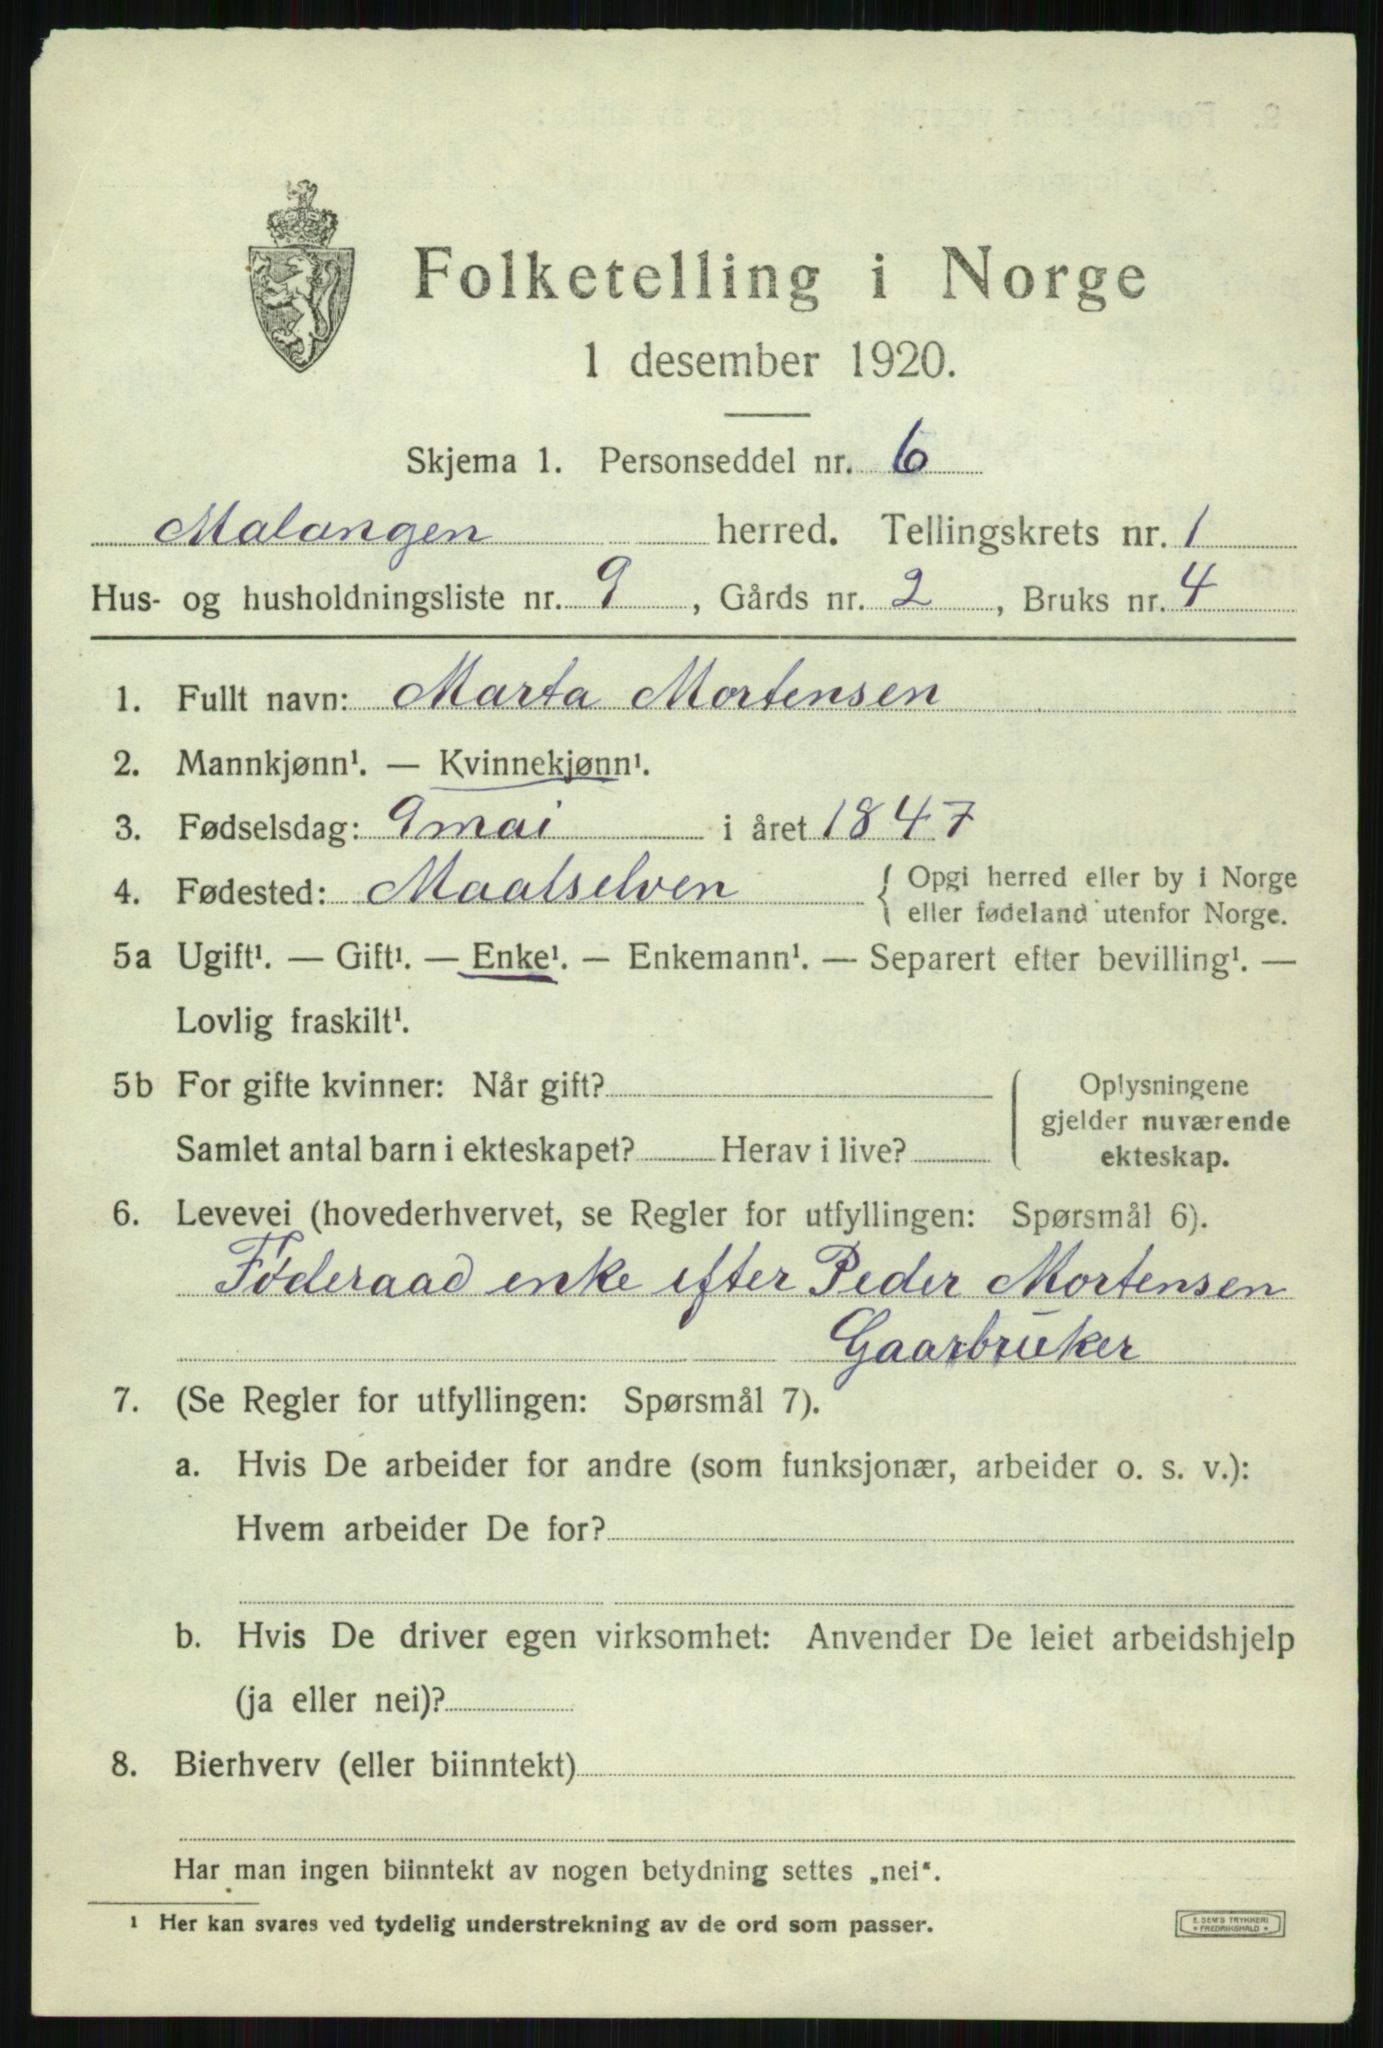 Folketelling i Norge
1 desember 1920.
Skjema 1. Personseddel nr. 6
Malangen herred. Tellingskrets nr. 1
Hus- og husholdningsliste nr. 9, Gårds nr. 2, Bruks nr. 4
1. Fullt navn: Marta Mortensen
2. Mannkjønn¹. — Kvinnekjønn¹.
3. Fødselsdag: 9 mai i året 1847
4. Fødested: Maalselven { Opgi herred eller by i Norge
eller fødeland utenfor Norge.
5a Ugift¹. — Gift¹. — Enke¹. — Enkemann¹. — Separert efter bevilling¹. —
Lovlig fraskilt¹.
5b For gifte kvinner: Når gift?
Samlet antal barn i ekteskapet? Herav i live?
Oplysningene
gjelder nuværende
ekteskap.
6. Levevei (hovederhvervet, se Regler for utfyllingen: Spørsmål 6).
Føderaad enke efter Peder Mortensen
Gaarbruker
7. (Se Regler for utfyllingen: Spørsmål 7).
a. Hvis De arbeider for andre (som funksjonær, arbeider o. s. v.):
Hvem arbeider De for?
b. Hvis De driver egen virksomhet: Anvender De leiet arbeidshjelp
(ja eller nei)?
8. Bierhverv (eller biinntekt)
Har man ingen biinntekt av nogen betydning settes „nei“.
¹ Her kan svares ved tydelig understrekning av de ord som passer.
E. SEM'S TRYKKERI
* FREDRIKSHALD *